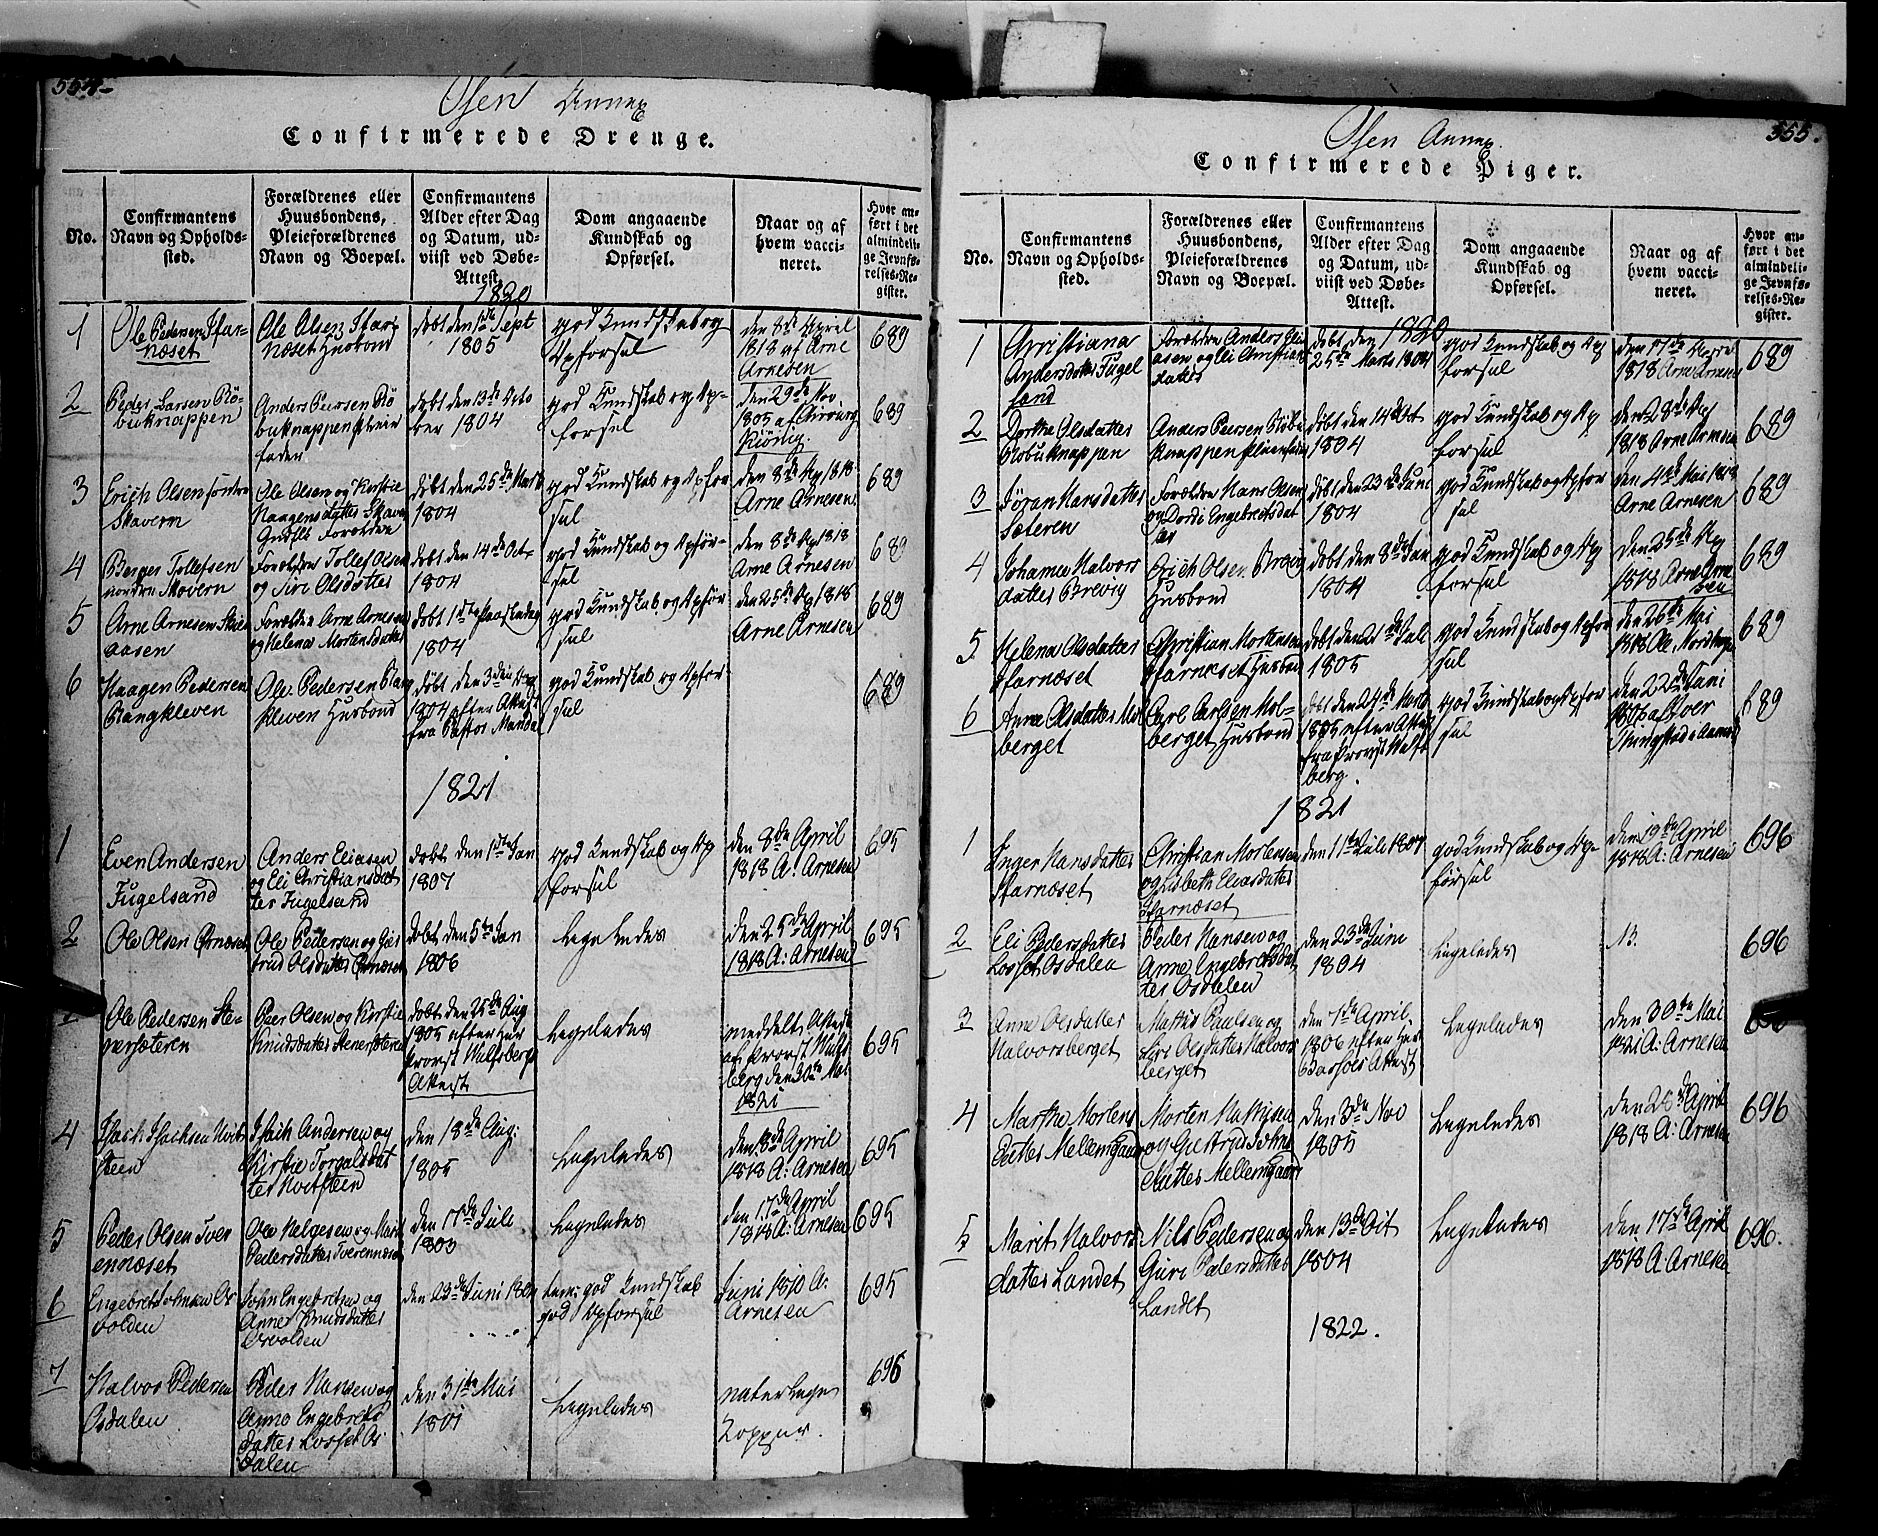 554
Osen Annex
Confirmerede Drenge.
No.
Confirmantens
Navn og Opholds-
sted.
Forældrenes eller
Huusbondens,
Pleieforældrenes
Navn og Boepæl.
Confirmantens
Alder efter Dag
og Datum, ud-
viist ved Døbe-
Attest.
Dom angaaende
Kundskab og
Opførsel.
Naar og af
hvem vacci-
neret.
Hvor an-
ført i det
almindeli-
ge Jevnfø-
relses-Re-
gister.
1820
1
Ole Pedersen
næset
Ole Olsen
næset Husbond
døbt den 1de Sept
1805
god Kundskab og
Opforsel
den 8de April
1818 af Arne
Arnesen
689
2
Peder Larsen Rö-
buknappen
Anders Peersen Rö
buknappen
døbt den 13de Octo
ber 1804
god Kundskab og Op-
forsel
den 29de Nov
1805 af Chirurg
689
3
Erich Olsen søndre
Skavern
Ole Olsen og Kirstie
Haagensdatter
Forældre
døbt den 25de Marts
1804
god Kundskab og Opfor
sel
den 8de Ap 1818
Arne Arnesen
689
4
Berger Tollefsen
nordre Skovern
Forældre Tollef Olsen
og Siri Olsdatter
døbt den 14de Oct
1804
god Kundskab og Opför-
sel
den 8de Ap 1818
Arne Arnesen
689
5
Arne Arnesen
aasen
Forældre Arne Arnesen
og Helena Mortensdatter
døbt 1ste Paaskedag
1804
god Kundskab og Opför
sel
den 25de Ap 1818
Arne Arnesen
689
6
Haagen Pedersen
Rangkleven
Ole Pedersen Rang
kleven Husbond
døbt den 3den
1804 efter Attest
fra Pastor
god Kundskab og Opfor
sel
689
1821
1
Even Andersen
Fugelsand
Anders Eliasen
og Eli Christiansdat
ter Fugelsand
døbt den 1ste Jan
1807
god Kundskab og Op
forsel
den 8de April
1818 A: Arnesen
695
2
Ole Olsen Ørnæset
Ole Pedersen og
trud Olsdatter Ørnæset
døbt den 5te Jan
1806
Ligeledes
den 25de April
1818 A: Arnesen
695
Ole Pedersen Ste-
nersæteren
Peer Olsen og Kirstie
Knudsdatter Stenersæteren
døbt den 25de Aug
1805 efter Her
Provst Wulfsbergs
Attest
Ligeledes
meddelt Attest
af Provst Wulfs
berg den 30te Mai
1821
695
4
Isach Isachsen Hvit
steen
Isach Andersen og
Kirstie Torgalsdat
ter Hvitsteen
den 18de Aug:
1805
Ligeledes
den 8de April
1818 A: Arnesen
695
5
Peder Olsen Tver
ennæset
Ole Helgesen og Marit
Pedersdatter Tverennæset
den 17de Juli
1803
Ligeledes
den 17de April
1818 A: Arnesen
695
6
Engebret Johnsen Os
volden
John Engebretsen og
Anne Knudsdatter
Osvolden
den 29de Juni
god Kundskab
god Opforsel
Juni 1810 A:
Arnesen
695
7
Halvor Pedersen
Osdalen
Peder Hansen og
Anne Engebrets
datter Losset Os
dalen
den 31te Mai
1801
Ligeledes
naturlige
Kopper.
696
555.
Osen Annex.
Confirmerede Piger.
No.
Confirmantens
Navn og Opholds-
sted.
Forældrenes eller
Huusbondens,
Pleieforældrenes
Navn og Boepæl.
Confirmantens
Alder efter Dag
og Datum, ud-
viist ved Døbe-
Attest.
Dom angaaende
Kundskab og
Opførsel.
Naar og af
hvem vacci-
neret.
Hvor an-
ført i det
almindeli-
ge Jevnfø-
relses-Re-
gister.
1820
1
Christiana
Andersdatter Fugel
sand
Forældre Anders Eli
asen og Eli Christians
datter
døbt den
25de Marts 1804
god Kundskab og Op
forsel
den 17de
1818 Arne Arnesen
689
2
Dorthe Olsdatter
Röbuknappen
Anders Peersen Röbu
knappen
døbt den 14 Oct
1804
god Kundskab og Op
forsel
den 28de Ap
1818 Arne Arnesen
689
3
Jöran Hansdatter
Sæteren
Forældre Hans Olsen
og Dordi Engebretsdat
ter
døbt den 23de Juni
1804
god Kundskab og Opfor
sel
den 4de Mai 1818
Arne Arnesen
689
4
Johanne Halvors
datter Brevig
Erich Olsen Brevig
Husbond
døbt den 8de Jan
1804
god Kundskab og Op
forsel
den 25de Ap
1818 Arne Arne
sen
689
5
Helena Olsdatter
næset
Christian Mortensen
næset Husbond
døbt den 21de Juli
1805
god Kundskab og Opfor
sel
den 26de Mai
1818 Ole
689
6
Anne Olsdatter Mol
berget
Carl Carlsen Mol-
berget Husbond
døbt den 24de Marts
1805 efter Attest
fra Provst Wulfs
berg.
god Kundskab og Opfor
sel
den 22de Juni
1806 af Iver
689
1821
1
Inger Hansdatter
næset
Christian Mortensen
og Lisbeth Eliasdatter
næset
den 11te Juli 1807
god Kundskab og Op-
førsel
den 19de April
1818 A: Arnesen
696
2
Eli Pedersdatter
Losset Osdalen
Peder Hansen og
Anne Engebretsdat
ter Osdalen
den 23de Juni
1804
Ligeledes
N.
696
3
Anne Olsdatter
Halvorsberget
Mattis Paulsen og
Siri Olsdatter Halvors
berget
den 7de April
1806 efter Her
Attest
Ligeledes
den 30te Mai
1821 A: Arnesen
696
4
Marthe Mortens
datter Mellemgaard
Morten Mattisen
og Giertrud Johns
datter Mellemgaard
den 3de Nov
1805
Ligeledes
den 25de April
1818 A: Arnesen
696
5
Marit Halvors
datter Landet
Nils Pedersen og
Guri Pedersdatter
Landet
den 13de Oct
1804
Ligeledes
den 17de April
1818 A: Arnesen
696.
1822.